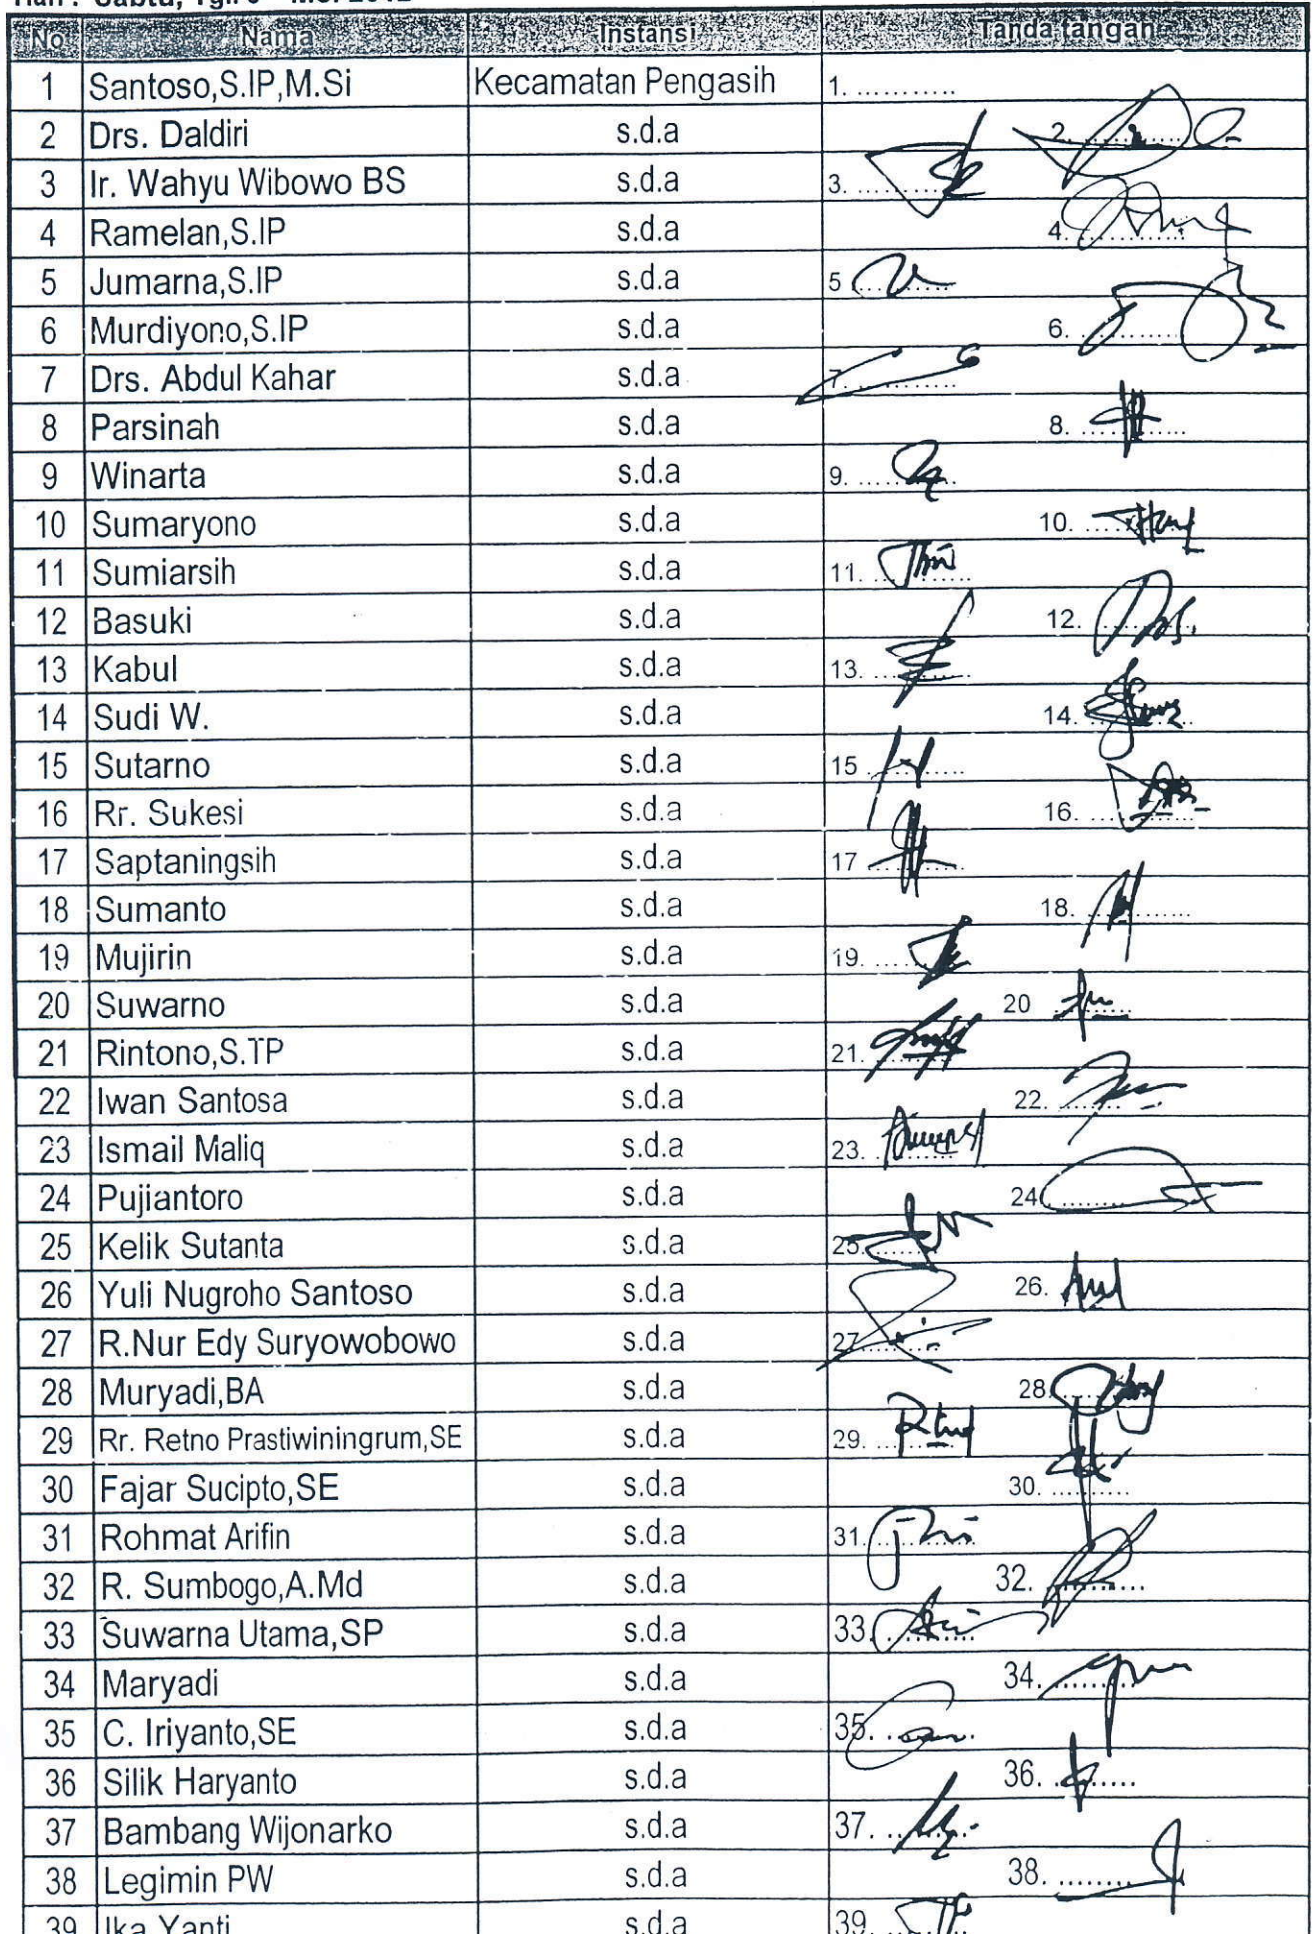 Hari : Sabtu, Tgl.
No Nama Instansi Tanda tangan
1 Santoso,S.IP,M.Si Kecamatan Pengasih 1. ...........
2 Drs. Daldiri s.d.a 2. ...........
3 Ir. Wahyu Wibowo BS s.d.a 3. ...........
4 Ramelan,S.IP s.d.a 4. ...........
5 Jumarna,S.IP s.d.a 5 ...........
6 Murdiyono,S.IP s.d.a 6. ...........
7 Drs. Abdul Kahar s.d.a 7. ...........
8 Parsinah s.d.a 8. ...........
9 Winarta s.d.a 9. ...........
10 Sumaryono s.d.a 10. ...........
11 Sumiarsih s.d.a 11. ...........
12 Basuki s.d.a 12. ...........
13 Kabul s.d.a 13. ...........
14 Sudi W. s.d.a 14. ...........
15 Sutarno s.d.a 15 ...........
16 Rr. Sukesi s.d.a 16. ...........
17 Saptaningsih s.d.a 17 ...........
18 Sumanto s.d.a 18. ...........
19 Mujirin s.d.a 19. ...........
20 Suwarno s.d.a 20 ...........
21 Rintono,S.TP s.d.a 21. ...........
22 Iwan Santosa s.d.a 22. ...........
23 Ismail Maliq s.d.a 23. ...........
24 Pujiantoro s.d.a 24 ...........
25 Kelik Sutanta s.d.a 25. ...........
26 Yuli Nugroho Santoso s.d.a 26. ...........
27 R.Nur Edy Suryowobowo s.d.a 27 ...........
28 Muryadi,BA s.d.a 28. ...........
29 Rr. Retno Prastiwiningrum,SE s.d.a 29. ...........
30 Fajar Sucipto,SE s.d.a 30. ...........
31 Rohmat Arifin s.d.a 31. ...........
32 R. Sumbogo,A.Md s.d.a 32. ...........
33 Suwarna Utama,SP s.d.a 33. ...........
34 Maryadi s.d.a 34. ...........
35 C. Iriyanto,SE s.d.a 35. ...........
36 Silik Haryanto s.d.a 36. ...........
37 Bambang Wijonarko s.d.a 37. ...........
38 Legimin PW s.d.a 38. ...........
39 Ika Yanti s.d.a 39. ...........